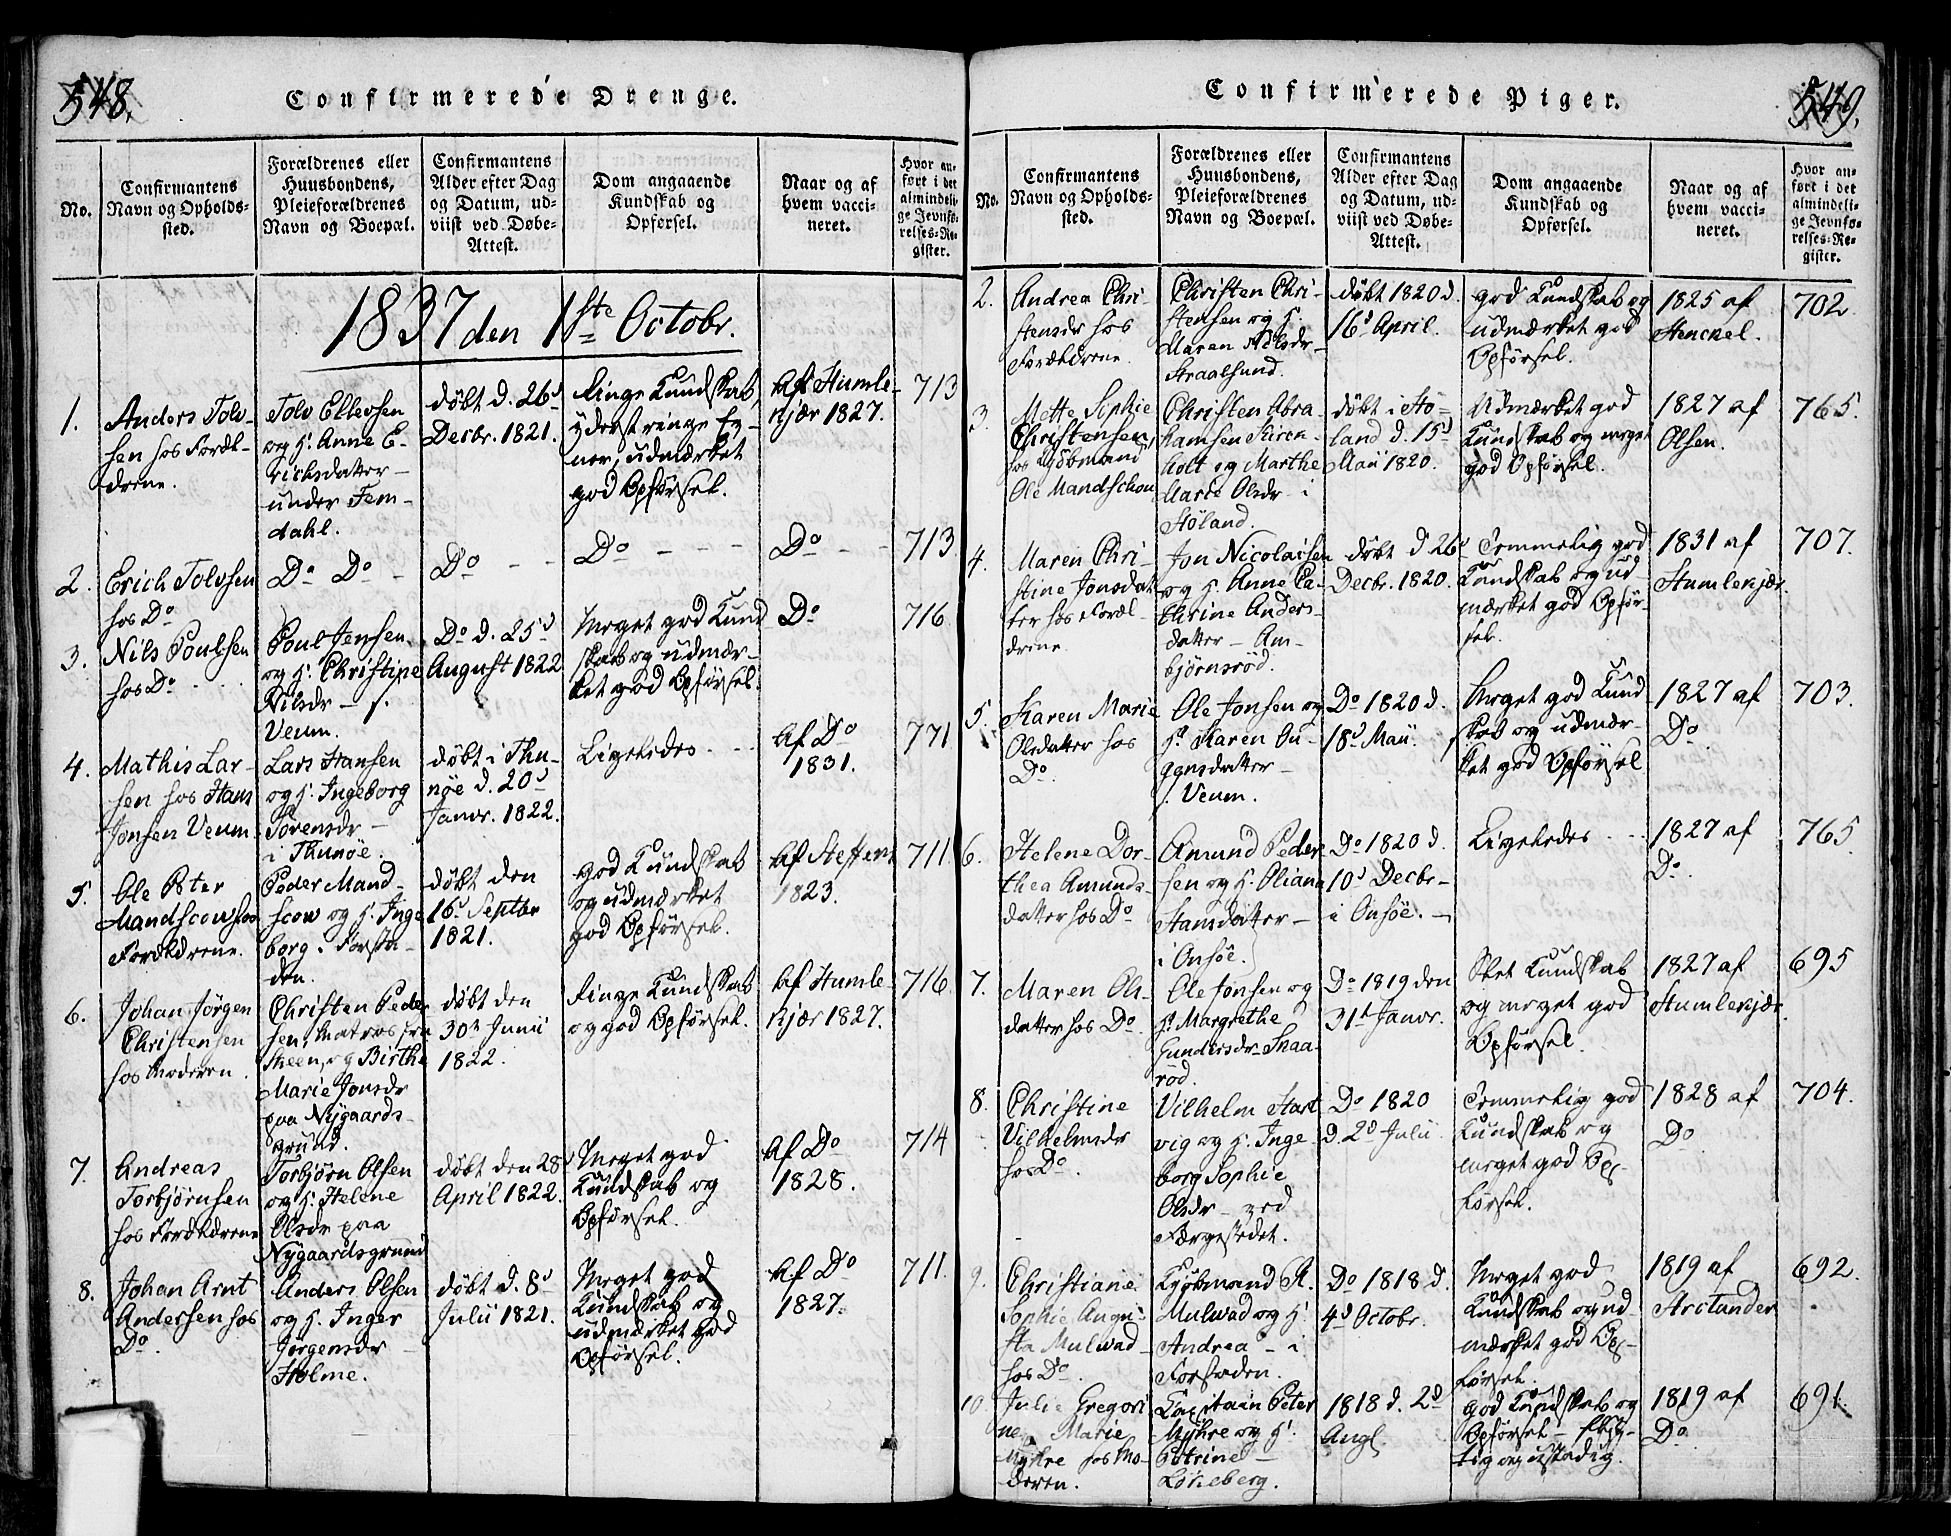 548.
Confirmerede Drenge.
No.
Confirmantens
Navn og Opholds-
sted.
Forældrenes eller
Huusbondens,
Pleieforældrenes
Navn og Boepæl.
Confirmantens
Alder efter Dag
og Datum, ud-
viist ved Døbe-
Attest.
Dom angaaende
Kundskab og
Opførsel.
Naar og af
hvem vacci-
neret.
Hvor an-
ført i det
almindeli-
ge Jevnfø-
relses-Re-
gister.
1837 den 1ste Octobr.
1.
Anders Tolv-
sen hos Foræl-
drene.
Tolv Ellevsen
og H. Anne E-
richsdatter –
under Tem-
dahl.
døbt d. 26d
Decbr. 1821.
Ringe Kundskab,
yderst ringe Ev-
ner, udmærket
god Opførsel.
Af Humle-
kjær 1827.
713
2.
Erich Tolvsen
hos Do
Do Do –
Do – –
Do – – –
Do – –
713
3.
Nils Poulsen
hos Do
Poul Jensen
og H. Christine
Nilsdr –
Veum.
Do d. 25d
August 1822
Meget god Kund
skab og udmær-
ket god Opførsel.
Do
716
4.
Mathis Lar-
sen hos Hans
Jonsen Veum.
Lars Hansen
og H. Ingeborg
Sørensdr –
i Thunøe.
døbt i Thu-
nøe d. 20d
Janvr. 1822.
Ligeledes
Af Do
1831.
771
5.
Ole Peter
Mandscow hos
Forældrene.
Peder Mand-
scow og H. Inge
borg i Forsta-
den.
døbt den
16d Septbr
1821.
god Kundskab
og udmærket
god Opførsel.
Af Steffens
1823.
711.
6.
Johan Jørgen
Christensen
hos Moderen.
Christen Peder
sen, Matros fra
Skeen, og Birthe
Marie Jonsdr
paa Nygaards-
grund.
døbt den
30te Junii
1822.
Ringe Kundskab
og god Opførsel.
Af Humle
kjær 1827.
716.
7.
Andreas
Torbjørnsen
hos Forældrene
Torbjørn Olsen
og H. Helene
Olsdr paa
Nygaardsgrund
døbt den 28d
April 1822.
Meget god
Kundskab og
Opførsel.
Af Do
1828.
714
8.
Johan Arnt
Andersen hos
Do.
Anders Olsen
og H. Inger
Jørgensdr –
Holme.
døbt d. 8d
Julii 1821.
Meget god
Kundskab og
udmærket god
Opførsel.
Af Do
1827.
711.
549.
Confirmerede Piger.
No.
Confirmantens
Navn og Opholds-
sted.
Forældrenes eller
Huusbondens,
Pleieforældrenes
Navn og Boepæl.
Confirmantens
Alder efter Dag
og Datum, ud-
viist ved Døbe-
Attest.
Dom angaaende
Kundskab og
Opførsel.
Naar og af
hvem vacci-
neret.
Hvor an-
ført i det
almindeli-
ge Jevnfø-
relses-Re-
gister.
2.
Andrea Chri
stensdr hos
Forældrene.
Christen Chri-
stensen og H.
Maren Nilsdr –
Straalsund.
døbt 1820 d.
16d April.
god Kundskab og
udmærket god
Opførsel.
1825 af
Henckel.
702.
3.
Mette Sophie
Christensen,
hos Kjøbmand
Ole Mandschou
Christen Abra-
hamsen Kiren-
holt og Marthe
Marie Olsdr i
Høland.
døbt i Hø-
land d. 15d
Maii 1820.
Udmærket god
Kundskab og meget
god Opførsel.
1827 af
Olsen.
765.
4.
Maren Chri-
stine Jonsdat-
ter hos Foræl-
drene.
Jon Nicolaisen
og H. Anne Ca-
thrine Anders-
datter – Am-
bjørnsrød.
døbt d 26d
Decbr. 1820.
Temmelig god
Kundskab og ud-
mærket god Opfør-
sel.
1831 af
Humlekjær.
707.
5.
Karen Marie
Olsdatter hos
Do.
Ole Jonsen og
H. Karen Au-
gensdatter –
Veum.
Do 1820 d.
18d Maii.
Meget god Kund
skab og udmær-
ket god Opførsel
1827 af
Do.
703.
6.
Helene Dor-
thea Amunds-
datter hos Do
Amund Peder
sen og H. Oliana
Hansdatter –
i Onsøe.
Do 1820 d.
10d Decbr –
i Onsøe. –
Ligeledes
1827 af
Do.
765.
7.
Maren Ols-
datter hos Do.
Ole Jonsen og
H. Margrethe
Gundersdr – Snaa-
rød.
Do 1819 den
31te Janvr.
Slet Kundskab
og meget god
Opførsel.
1827 af
Humlekjær.
695
8.
Christine
Vilhelmsdr
hos Do.
Vilhelm Hart
vig og H. Inge-
borg Sophie
Olsdr – ved
Færgestedet.
Do 1820
d. 2d Julii
Temmelig god
Kundskab og
meget god Op-
førsel.
1828 af
Do.
704.
9.
Christiane
Sophie Augu-
sta Mulvad
hos Do.
Kjøbmand A.
Mulvad og H.
Andrea – i
Forstaden.
Do 1818 d.
4d Octobr.
Meget god
Kundskab og ud
mærket god Op-
førsel.
1819 af
Arctander
692.
10.
Julie Gregori
ne Marie
Myhre hos Mo-
deren.
Capitain Peter
Myhre og H.
Petrine –
Lökeberg.
1818 d. 2d
Augl.
god Kundskab og
Opførsel – flyg-
tig og ustadig.
1819 af
Do.
691.